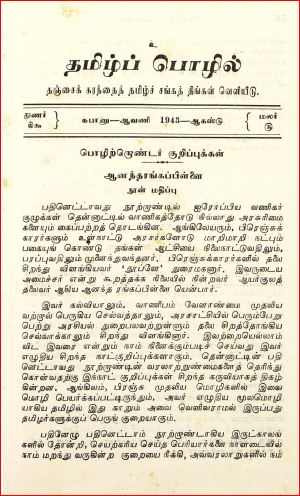 உ
தமிழ்ப் பொழில்
தஞ்சைக் கரந்தைத் தமிழ்ச் சங்கத் திங்கள் வெளியீடு.
துணர்
சுபானு—ஆவணி 1943—ஆகஸ்டு
மலர்
பொழிற்றொண்டர் குறிப்புக்கள்
ஆனந்தரங்கப்பிள்ளை
நூன் மதிப்பு
பதினெட்டாவது நூற்றாண்டில் ஐரோப்பிய வணிகர்
குழுக்கள் தென்னாட்டில் வாணிகத்தோடு நில்லாது அரசுரிமை
களையும் கைப்பற்றத் தொடங்கின. ஆங்கிலேயரும், பிரெஞ்சுக்
காரர்களும் உள்நாட்டு அரசர்களோடு மாறிமாறி நட்பும்
பகையுங் கொண்டு தங்கள் ஆட்சியை நிலைநாட்டுவதிலும்,
பரப்புவதிலும் முனைந்துவந்தனர். பிரெஞ்சுக்காரர்களில் தலை
சிறந்து விளங்கியவர் 'தூப்ளே' துரைமகனார். இவருடைய
அமைச்சர் என்று கூறத்தக்க நிலையில் நின்றவர் ஆயர்குலத்
தலைவர் ஆகிய ஆனந்த ரங்கப்பிள்ளை யென்பார்.
இவர் கல்வியாலும், வாணிபம் வேளாண்மை முதலிய
வற்றால் பெருகிய செல்வத்தாலும், அரசாட்சியில் பெரும்பேறு
பெற்று அரசியல் துறைபலவற்றுள்ளும் தலை சிறந்தோங்கிய
செல்வாக்காலும் சிறந்து விளங்கினார். இவற்றையெல்லாம்
விட இவரை என்றும் நாம் நினைக்கும்படிச் செய்வது இவர்
எழுதிய சிறந்த நாட்குறிப்புக்களாகும். தென்னாட்டின் பதி
னெட்டாவது நூற்றாண்டின் வரலாற்றுண்மைகளைத் தெரிந்து
கொள்வதற்கு இந்நாட் குறிப்புக்கள் சிறந்த கருவியாகத் திகழ்
கின்றன. ஆங்கிலம், பிரஞ்சு முதலிய மொழிகளில் இவை
மொழி பெயர்க்கப்பட்டிருந்தும், அவர் எழுதிய மூலமொழி
யாகிய தமிழில் இது காறும் அவை வெளிவராமல் இருப்பது
தமிழர்களுக்குப் பெருங் குறையாகும்.
பதினேழு பதினெட்டாம் நூற்றாண்டாகிய இருட்காலங்
களில் தோன்றி, செயற்கரிய செய்த பெரியார்களை நாளடைவில்
நாம் மறந்து வருகின்ற குறையை நீக்கி, அவ்வரலாறுகளில் நம்